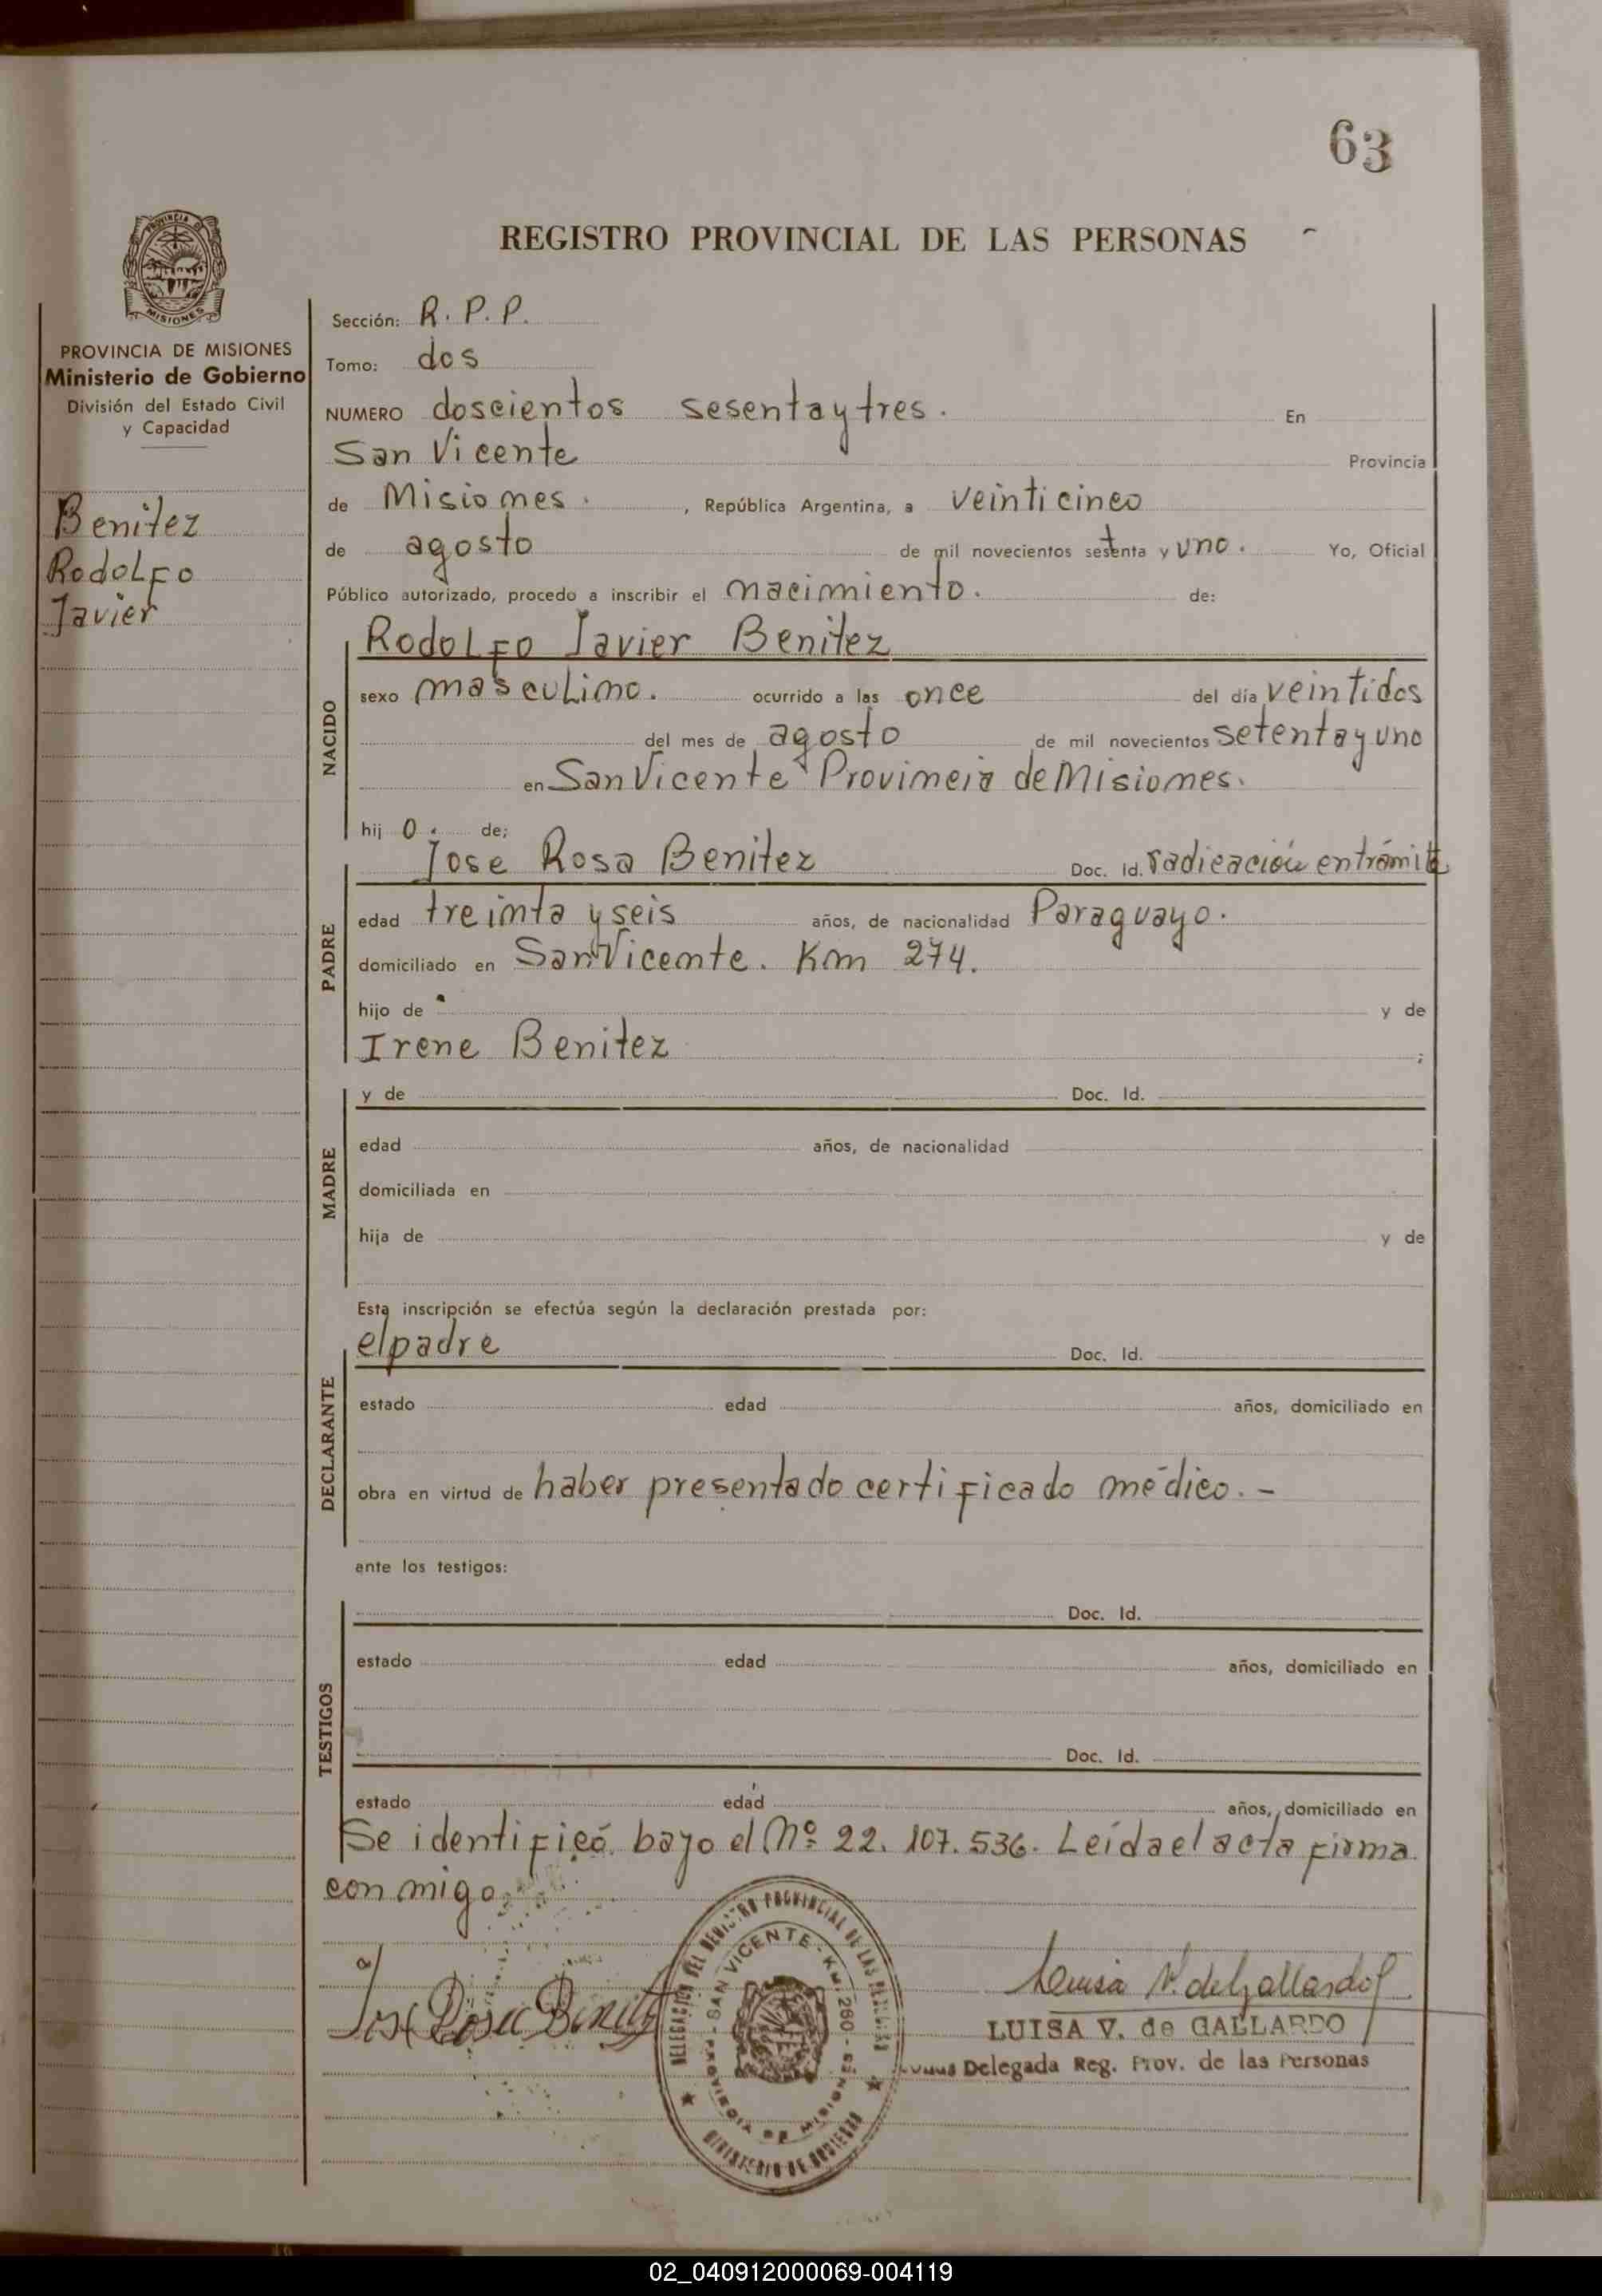 63
REGISTRO PROVINCIAL DE LAS PERSONAS
PROVINCIA DE MISIONES
Ministerio de Gobierno
División del Estado Civil
y Capacidad
Benitez
Rodolfo
Javier
Sección: R. P. P.
Tomo: dos
NUMERO doscientos sesenta y tres. En
San Vicente Provincia
de Misiones. , República Argentina, a veinticinco
de agosto de mil novecientos setenta y uno. Yo, Oficial
Público autorizado, procedo a inscribir el nacimiento. de:
NACIDO
Rodolfo Javier Benitez
sexo masculino. ocurrido a las once del día veintidos
del mes de agosto de mil novecientos setenta y uno
en San Vicente Provincia de Misiones.
hij o. de;
PADRE
Jose Rosa Benitez Doc. Id. radicación en trámite
edad treinta y seis años, de nacionalidad Paraguayo.
domiciliado en San Vicente. Km 274.
hijo de y de
Irene Benitez ;
MADRE
y de Doc. Id.
edad años, de nacionalidad
domiciliada en
hija de y de
Esta inscripción se efectúa según la declaración prestada por:
DECLARANTE
el padre Doc. Id.
estado edad años, domiciliado en
obra en virtud de haber presentado certificado médico. -
ante los testigos:
TESTIGOS
Doc. Id.
estado edad años, domiciliado en
Doc. Id.
estado edad años, domiciliado en
Se identificó bajo el Nº 22.107.536. Leída el acta firma
conmigo
Jose Rosa Benitez
DELEGACION DEL REGISTRO PROVINCIAL DE LAS PERSONAS
SAN VICENTE - KM. 260 - PROVINCIA DE MISIONES
MINISTERIO DE GOBIERNO
Luisa V. de Gallardo
LUISA V. de GALLARDO
Delegada Reg. Prov. de las Personas
02_040912000069-004119